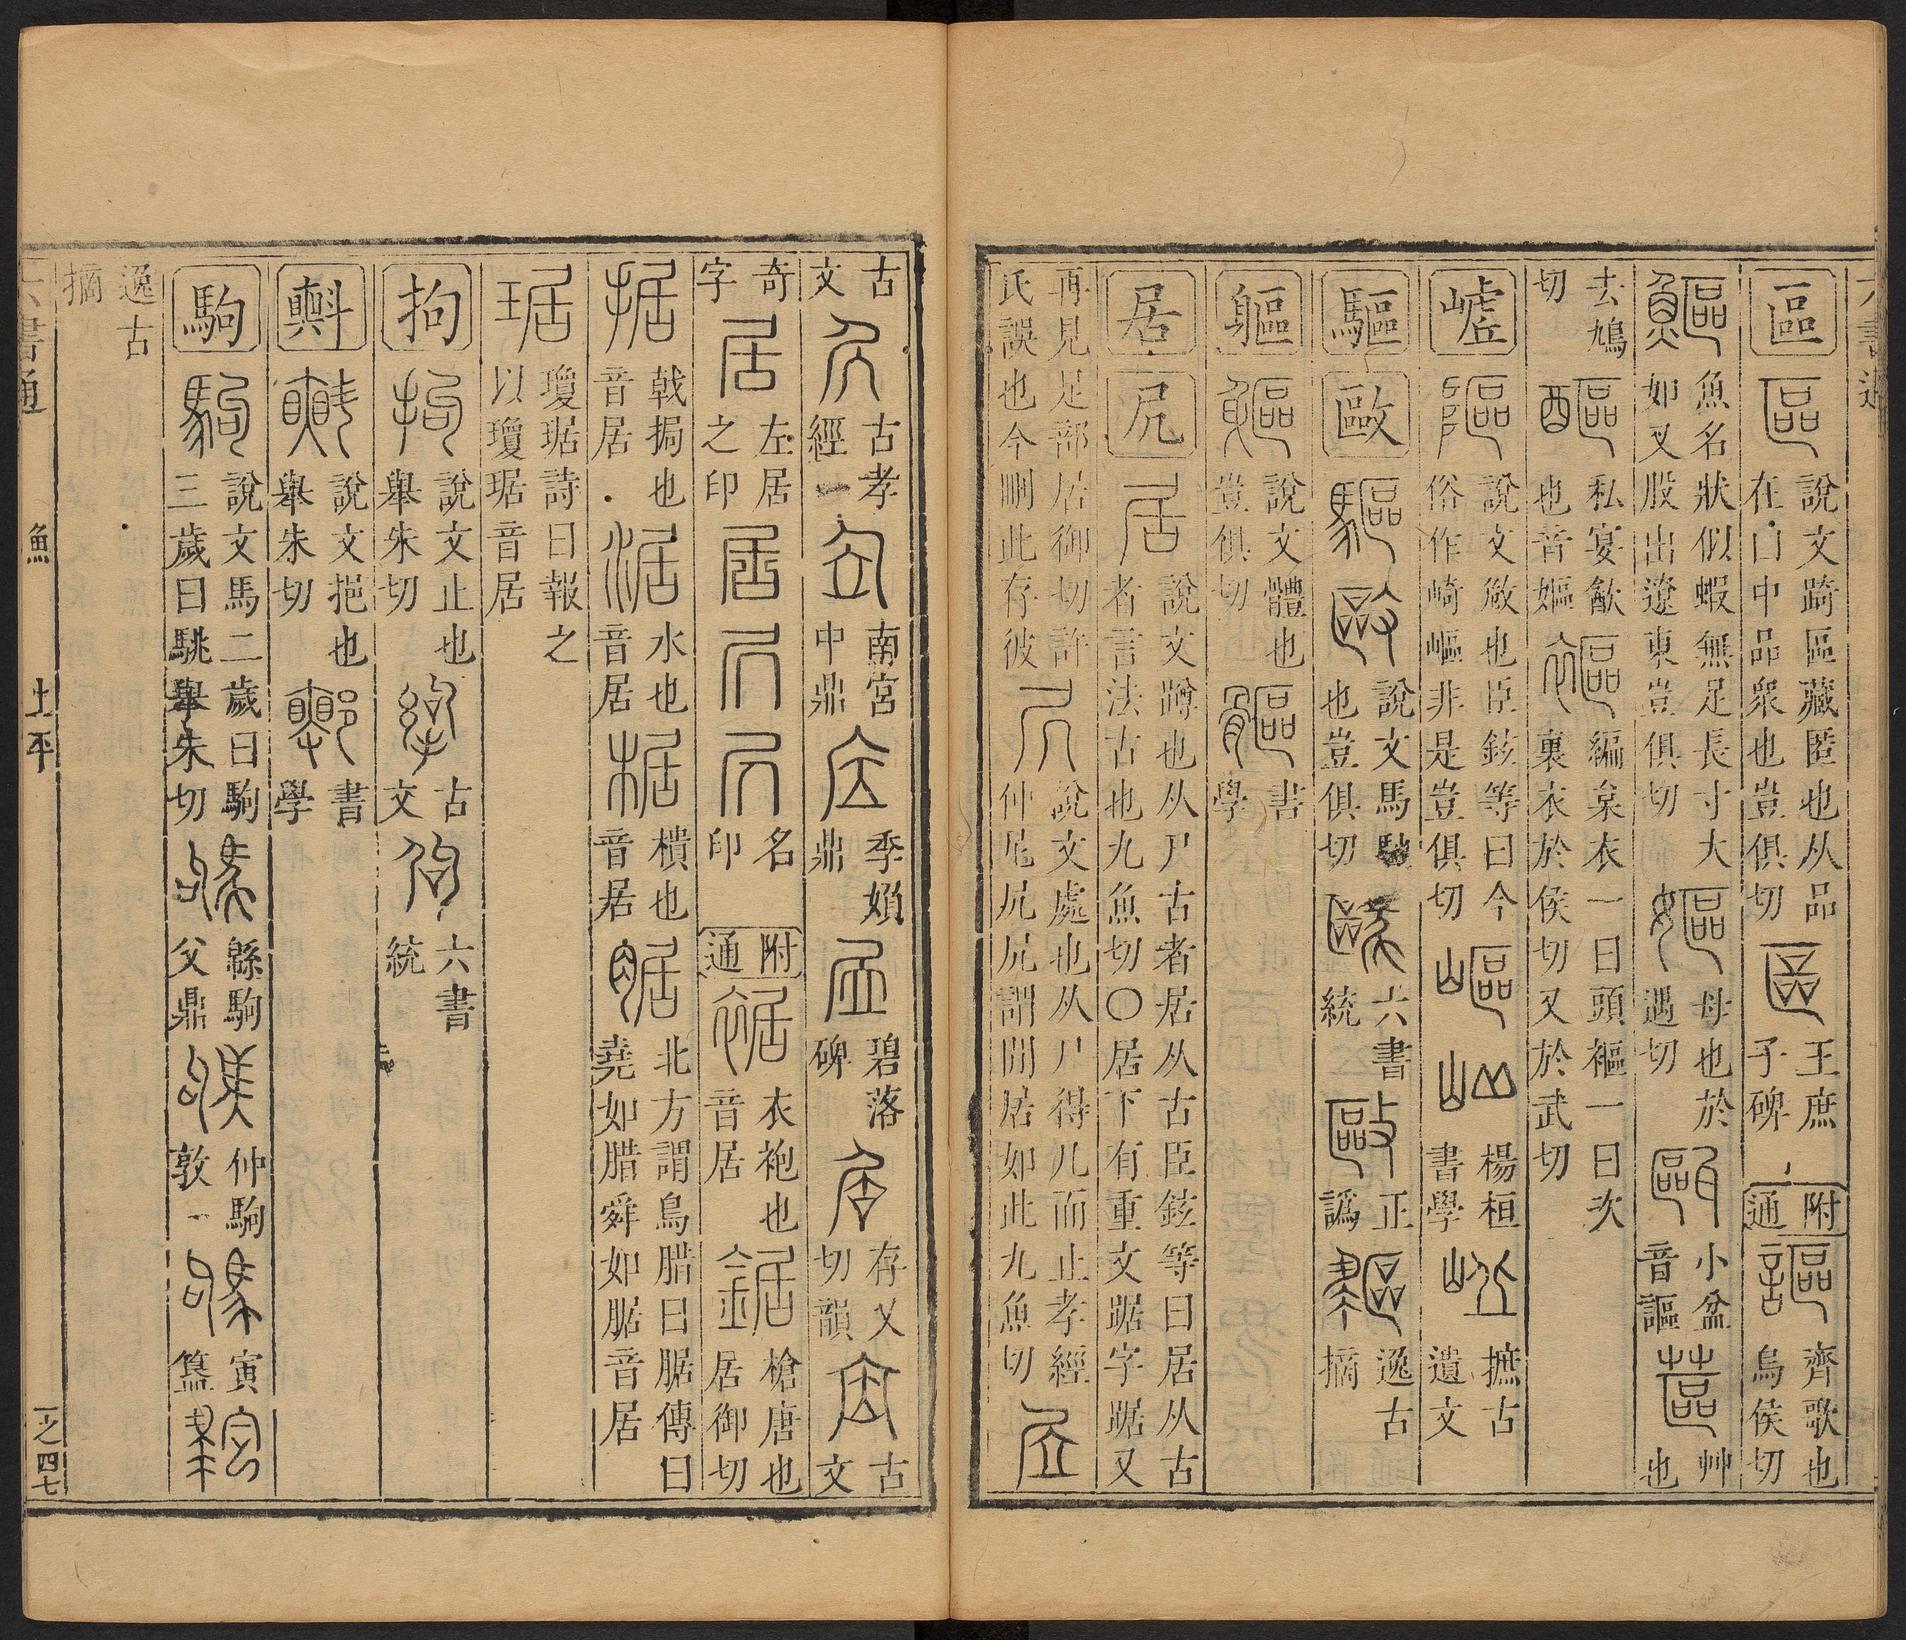 六書通
區 區 說文踦區藏匿也从品在匚中品衆也豈俱切 區 王庶子碑 附通 謳 齊歌也烏侯切
鰸 魚名狀似蝦無足長寸大如叉股出遼東豈俱切 嫗 母也於遇切 甌 小盆音謳 蓲 艸也
去鳩切 醧 私宴飲也音嫗 編枲衣一曰頭 一曰次裹衣於侯切又於武切
說文㪁也臣鉉等曰今俗作崎嶇非是豈俱切 嶇 楊桓書學 摭古遺文
驅 歐 驅 敺 說文馬馳也豈俱切 六書統 正譌 逸古摘
軀 軀 說文體也豈俱切 軀 書學
居 凥 居 說文蹲也从尸古者居从古臣鉉等曰居从古者言法古也九魚切○居下有重文踞字踞又
再見足部居御切許氏誤也今刪此存彼 凥 說文處也从尸得几而止孝經仲尼凥凥謂閒居如此九魚切
古文 古孝經 南宮中鼎 季娟鼎 碧落碑 存乂切韻 古文
奇字 居 左居之印 居 凥 凥 名印 附通 裾 衣袍也音居 鋸 槍唐也居御切
据 戟挶也音居 涺 水也音居 椐 樻也音居 腒 北方謂鳥腊曰腒傳曰堯如腊舜如腒音居
琚 瓊琚詩曰報之以瓊琚音居
拘 拘 說文止也舉朱切 古文 六書統
㪺 㪺 說文挹也舉朱切 書學
駒 駒 說文馬二歲曰駒三歲曰駣舉朱切 縣駒父鼎 仲駒敦 寅簋
逸古摘
六書通 魚 上平 一之四七